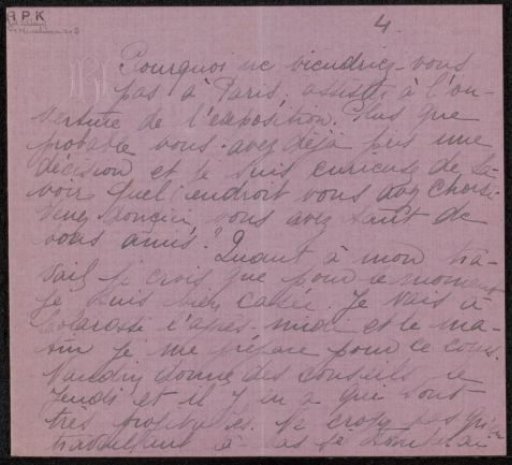 R P K
4.
Pourquoi ne viendriez-vous
pas à Paris, assister à l'ou-
verture de l'exposition. Plus que
probable vous avez déjà pris une
décision et je suis curieuse de sa-
voir quel endroit vous avez choisi.
vous avez tant de
vous amis? Quant à mon tra-
vail je crois que pour ce moment
je suis bien calée. Je vais à
Colarossi l'après-midi et le ma-
tin je me prépare pour ce cours.
donne des conseils le
jeudi et il y en a qui sont
très profitables. Ne croyez pas qu'en
travaillant à